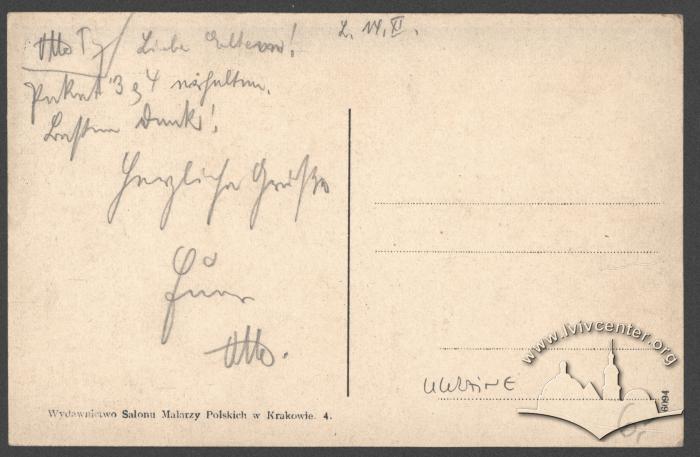 Otto
Liebe Eltern!
L. 14. XI.
Paket 3 & 4 erhalten.
Besten Dank!
Herzliche Grüße
Euer
Otto.
UKRAINE
Wydawnictwo Salonu Malarzy Polskich w Krakowie. 4.
6094
www.lvivcenter.org